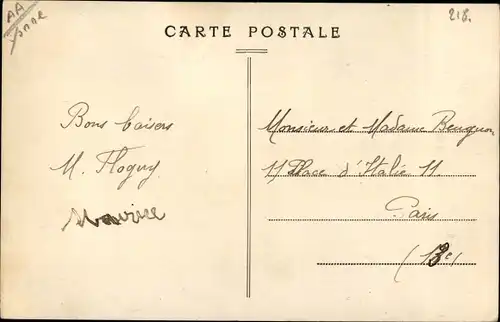 AA
Yonne
218.
CARTE POSTALE
Bons baisers
M. Floguy
Maurice
Monsieur et Madame Beuguon
11 Place d'Italie 11.
Paris
(13e)